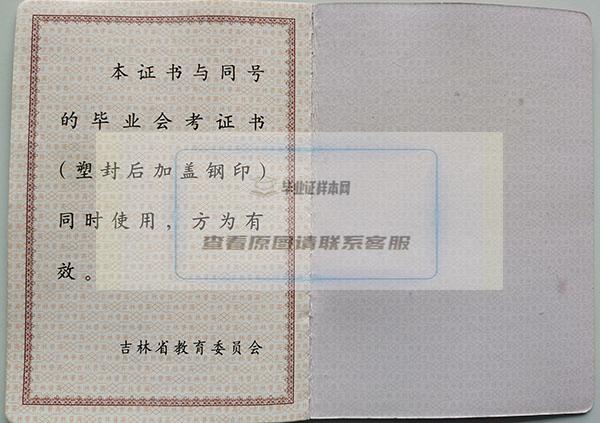 本证书与同号
的毕业会考证书
(塑封后加盖钢印)
同时使用，方为有
效。
吉林省教育委员会
毕业证样本网
查看原图请联系客服